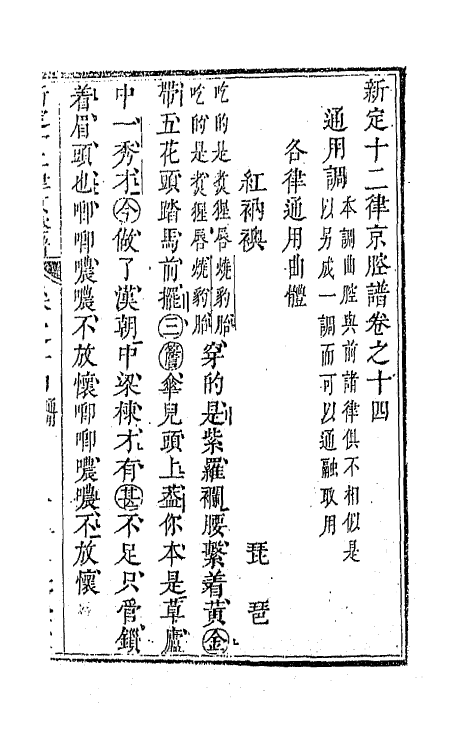 新定十二律京腔譜卷之十四
通用調
本調曲腔與前諸律俱不相似是
以另成一調而可以通融取用
各律通用曲體
紅衲襖 琵琶
吃的是煑猩唇燒豹胎
吃的是煑猩唇燒豹胎
穿的是紫羅襴腰繫着黃金
帶五花頭踏馬前擺三簷傘兒頭上蓋你本是草廬
中一秀才今做了漢朝中梁棟才有甚不足只管鎖
着眉頭也唧唧噥噥不放懷唧唧噥噥不放懷